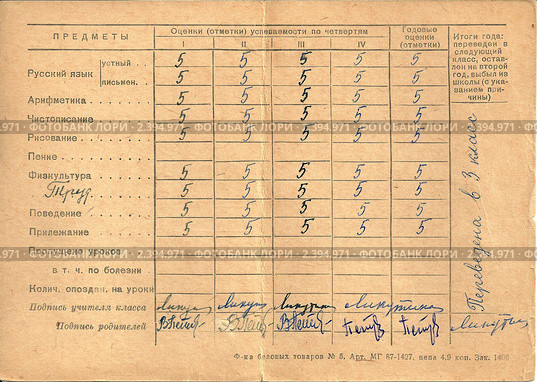 ПРЕДМЕТЫ
Оценки (отметки) успеваемости по четвертям
I II III IV
Годовые оценки (отметки)
Итоги года: переведен в следующий класс, оставлен на второй год, выбыл из школы (с указанием причины)
Русский язык
устный . . 5 5 5 5 5
письмен. . 5 5 5 5 5
Арифметика . . . . . . 5 5 5 5 5
Чистописание . . . . . 5 5 5 5 5
ФОТОБАНК ЛОРИ - 2.394.971 - ФОТОБАНК ЛОРИ - 2.394.971 - ФОТОБАНК ЛОРИ
Рисование . . . . . . 5 5 5 5 5
Пение . . . . . . . .
Физкультура . . . . . 5 5 5 5 5
Труд 5 5 5 5 5
Поведение . . . . . . 5 5 5 5 5
Прилежание . . . . . 5 5 5 5 5
Переведена в 3 класс
Пропущено уроков
2.394.971 - ФОТОБАНК ЛОРИ - 2.394.971 - ФОТОБАНК ЛОРИ - 2.394.971
в т. ч. по болезни
Колич. опоздан. на уроки
Подпись учителя класса
Подпись родителей
Ф-ка беловых товаров № 5. Арт. МГ 87-1427, цена 4,9 коп. Зак. 1406